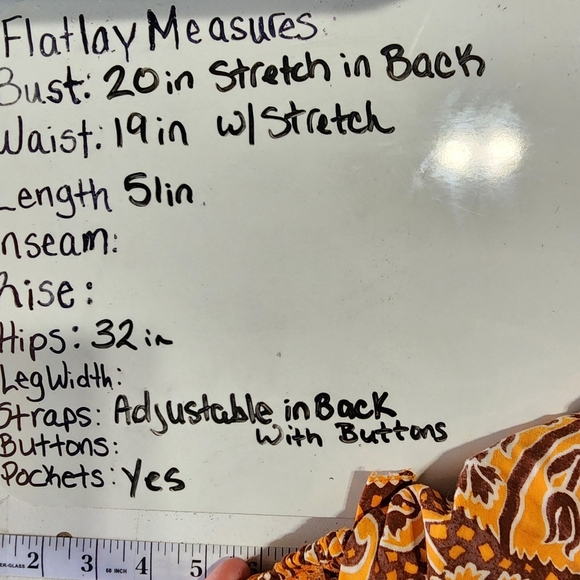 Flatlay Measures:
Bust: 20in Stretch in Back
Waist: 19in w/Stretch
Length 51in.
nseam:
Rise:
Hips: 32in
LegWidth:
Straps: Adjustable in Back
With Buttons
Buttons:
Pockets: Yes
ER-GLASS 2 3 60 INCH 4 5